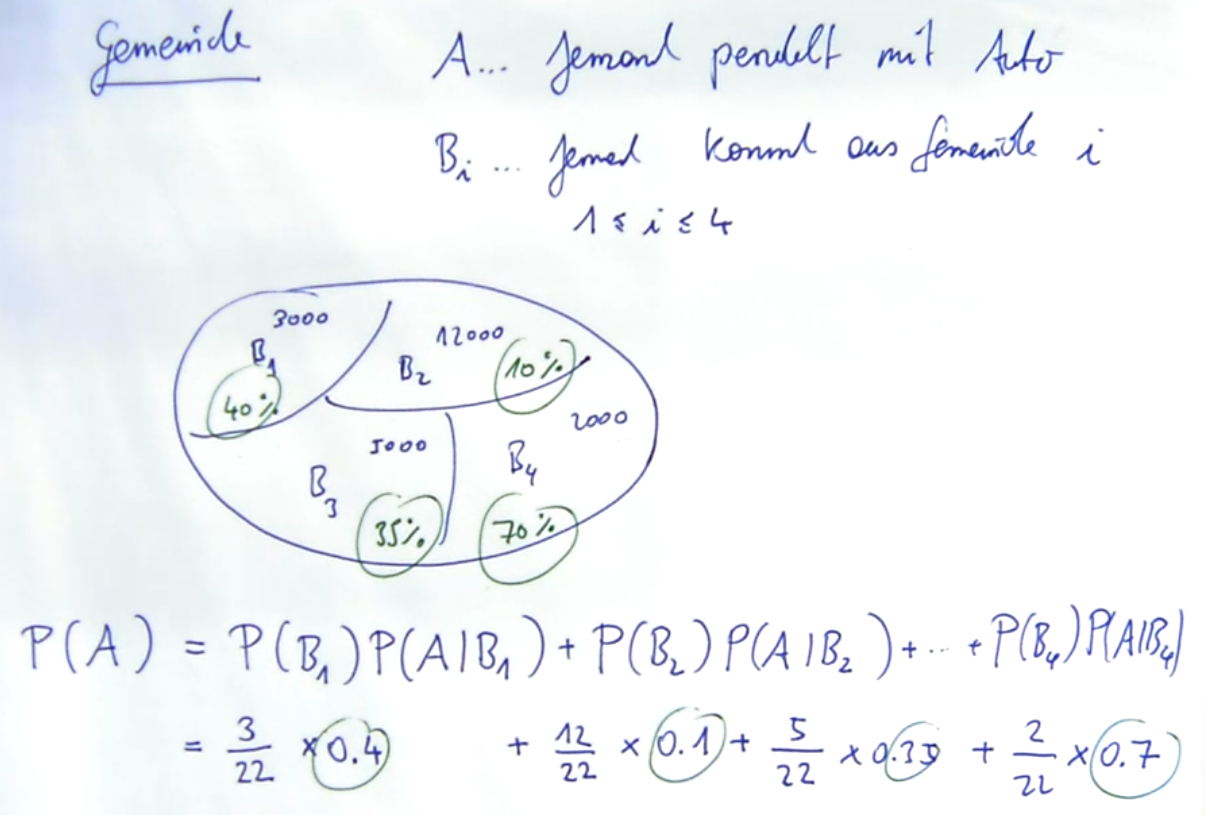 Gemeinde
A... Jemand pendelt mit Auto
B_i ... Jemand kommt aus Gemeinde i
1 ≤ i ≤ 4
3000
B_1
40%
12000
B_2
10%
5000
B_3
35%
2000
B_4
70%
P(A) = P(B_1)P(A|B_1) + P(B_2)P(A|B_2) + ... + P(B_4)P(A|B_4)
= 3/22 × 0.4 + 12/22 × 0.1 + 5/22 × 0.35 + 2/22 × 0.7